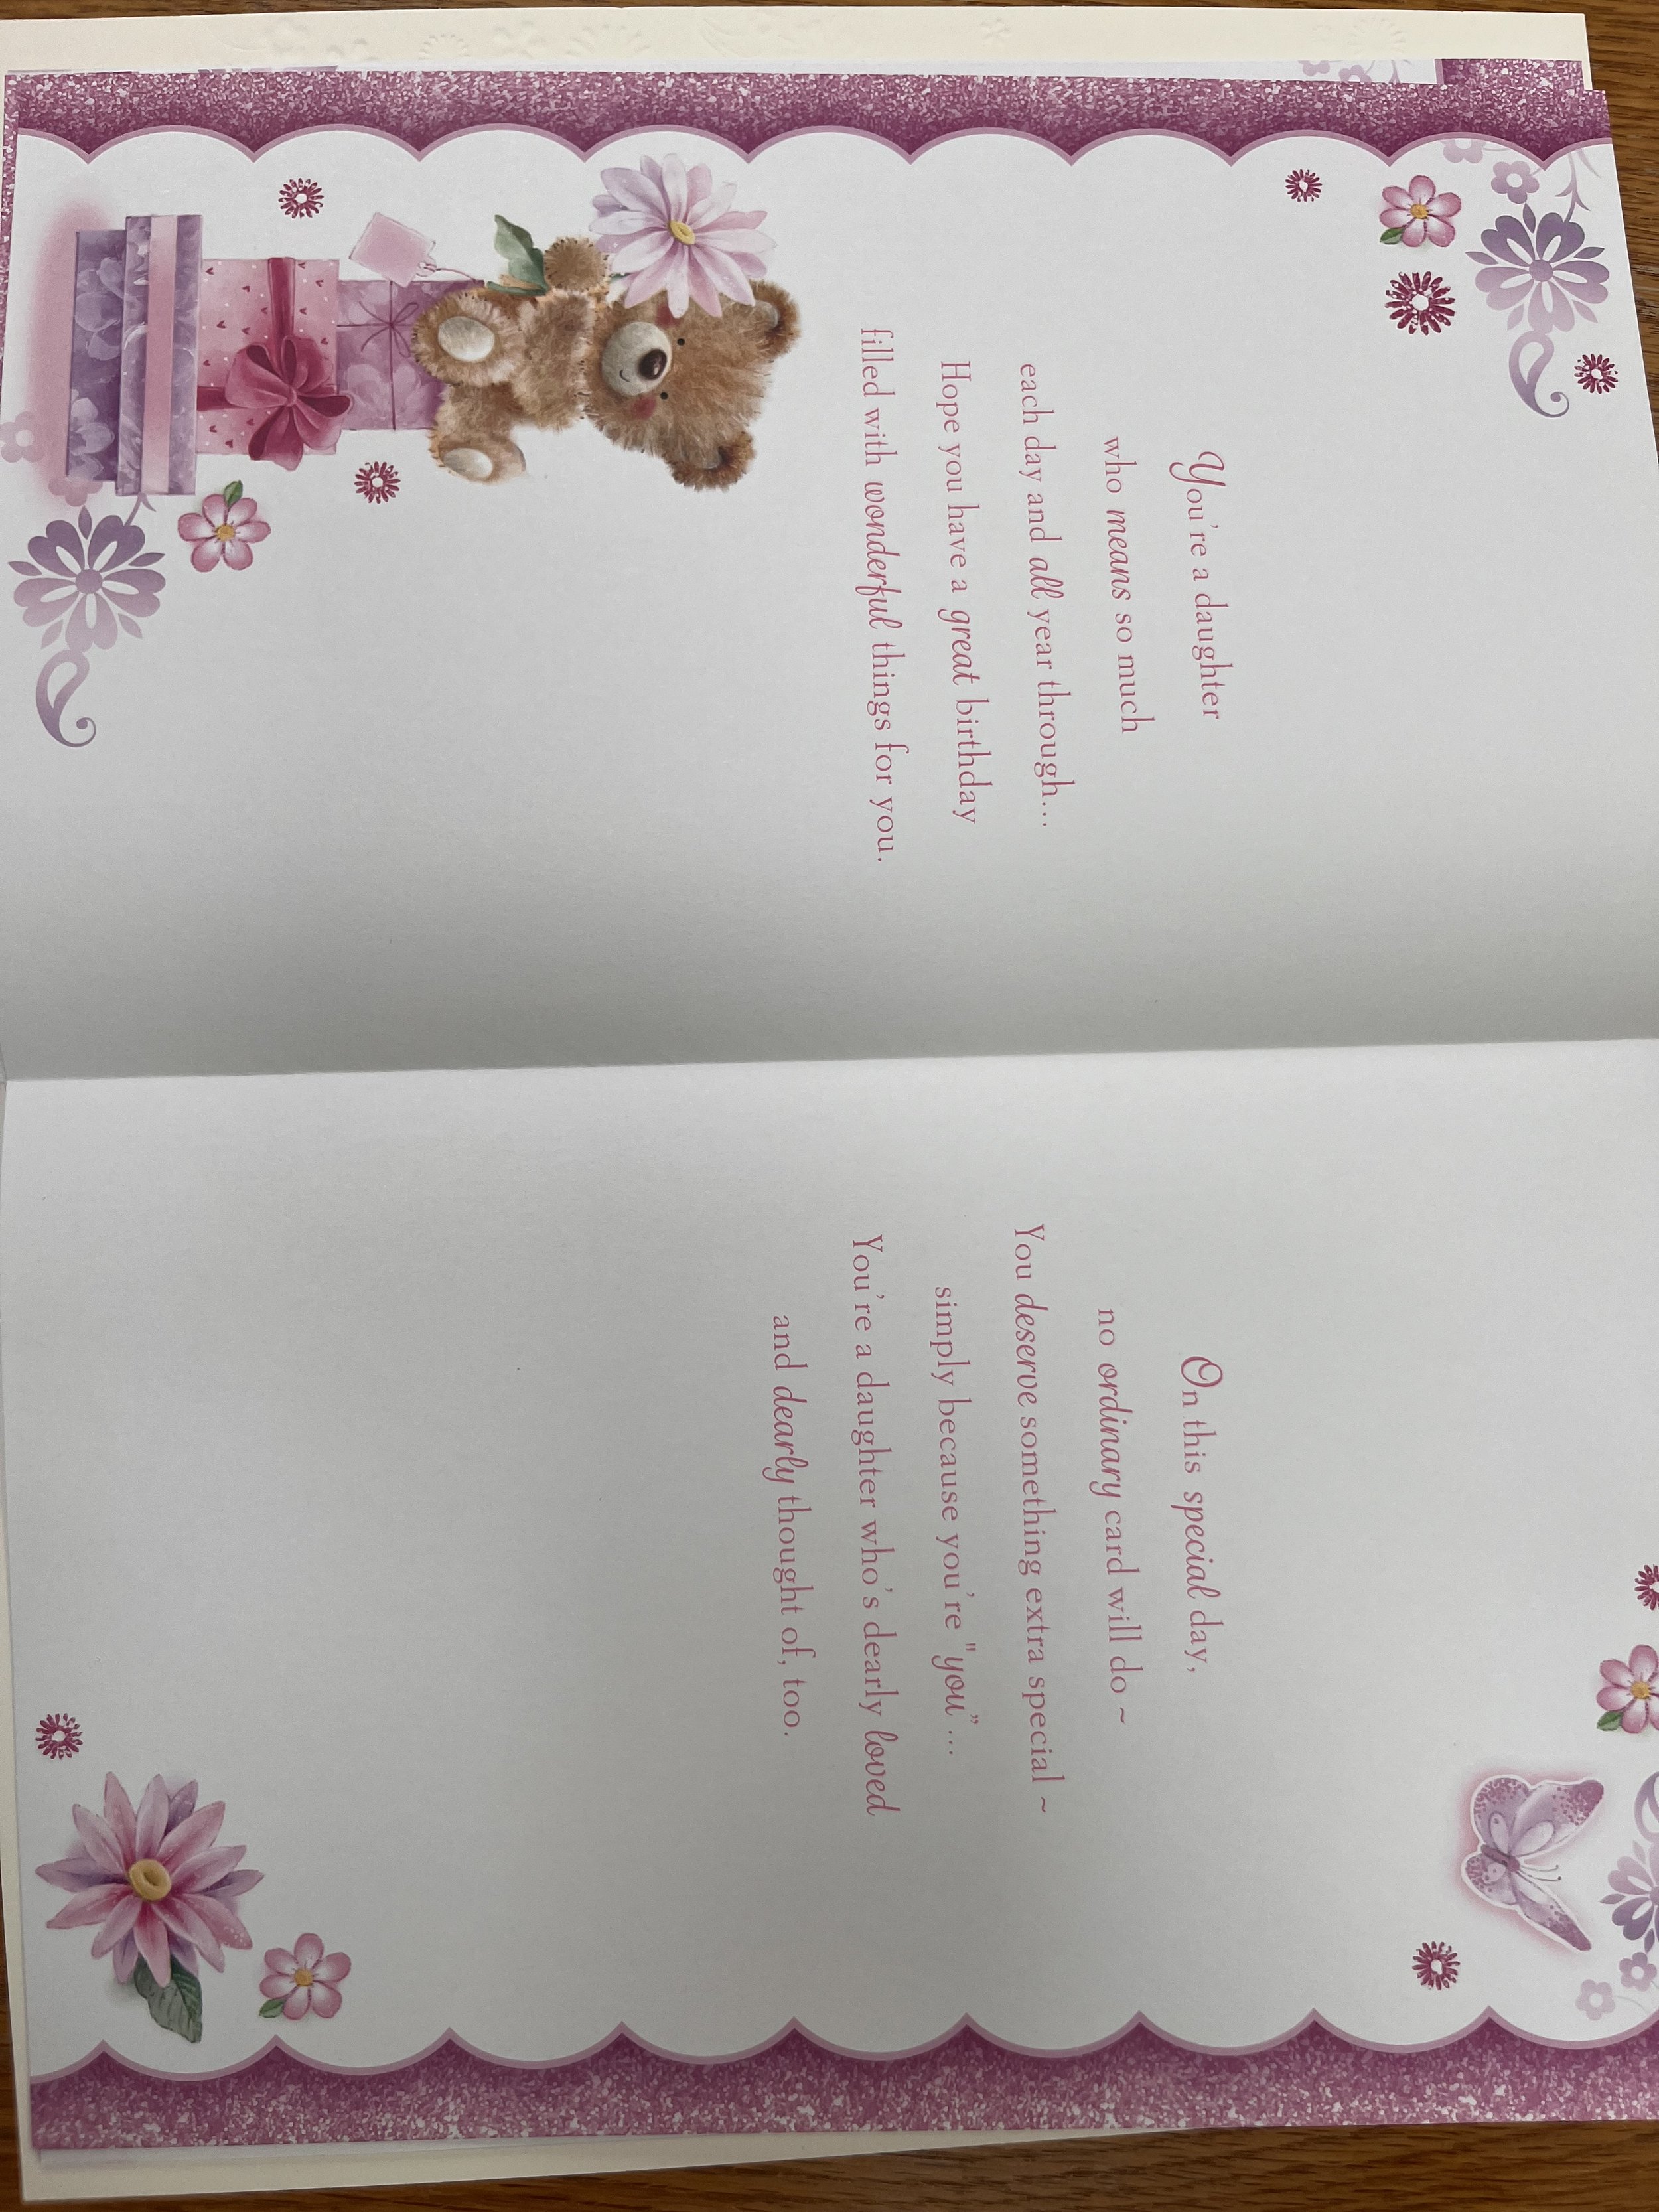 You're a daughter
who means so much
each day and all year through...
Hope you have a great birthday
filled with wonderful things for you.
On this special day,
no ordinary card will do ~
You deserve something extra special ~
simply because you're "you"...
You're a daughter who's dearly loved
and dearly thought of, too.